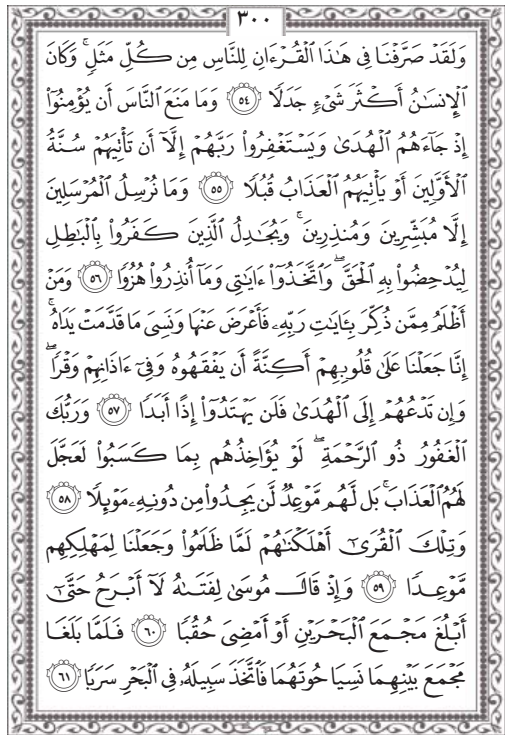 ٣٠٠
وَلَقَدْ صَرَّفْنَا فِي هَٰذَا ٱلْقُرْءَانِ لِلنَّاسِ مِن كُلِّ مَثَلٍۚ وَكَانَ
ٱلْإِنسَٰنُ أَكْثَرَ شَىْءٍ جَدَلًا ٥٤ وَمَا مَنَعَ ٱلنَّاسَ أَن يُؤْمِنُوٓا۟
إِذْ جَآءَهُمُ ٱلْهُدَىٰ وَيَسْتَغْفِرُوا۟ رَبَّهُمْ إِلَّآ أَن تَأْتِيَهُمْ سُنَّةُ
ٱلْأَوَّلِينَ أَوْ يَأْتِيَهُمُ ٱلْعَذَابُ قُبُلًا ٥٥ وَمَا نُرْسِلُ ٱلْمُرْسَلِينَ
إِلَّا مُبَشِّرِينَ وَمُنذِرِينَۚ وَيُجَٰدِلُ ٱلَّذِينَ كَفَرُوا۟ بِٱلْبَٰطِلِ
لِيُدْحِضُوا۟ بِهِ ٱلْحَقَّۖ وَٱتَّخَذُوٓا۟ ءَايَٰتِى وَمَآ أُنذِرُوا۟ هُزُوًا ٥٦ وَمَنْ
أَظْلَمُ مِمَّن ذُكِّرَ بِـَٔايَٰتِ رَبِّهِۦ فَأَعْرَضَ عَنْهَا وَنَسِىَ مَا قَدَّمَتْ يَدَاهُۚ
إِنَّا جَعَلْنَا عَلَىٰ قُلُوبِهِمْ أَكِنَّةً أَن يَفْقَهُوهُ وَفِىٓ ءَاذَانِهِمْ وَقْرًاۖ
وَإِن تَدْعُهُمْ إِلَى ٱلْهُدَىٰ فَلَن يَهْتَدُوٓا۟ إِذًا أَبَدًا ٥٧ وَرَبُّكَ
ٱلْغَفُورُ ذُو ٱلرَّحْمَةِۖ لَوْ يُؤَاخِذُهُم بِمَا كَسَبُوا۟ لَعَجَّلَ
لَهُمُ ٱلْعَذَابَۚ بَل لَّهُم مَّوْعِدٌ لَّن يَجِدُوا۟ مِن دُونِهِۦ مَوْئِلًا ٥٨
وَتِلْكَ ٱلْقُرَىٰٓ أَهْلَكْنَٰهُمْ لَمَّا ظَلَمُوا۟ وَجَعَلْنَا لِمَهْلِكِهِم
مَّوْعِدًا ٥٩ وَإِذْ قَالَ مُوسَىٰ لِفَتَىٰهُ لَآ أَبْرَحُ حَتَّىٰٓ
أَبْلُغَ مَجْمَعَ ٱلْبَحْرَيْنِ أَوْ أَمْضِىَ حُقُبًا ٦٠ فَلَمَّا بَلَغَا
مَجْمَعَ بَيْنِهِمَا نَسِيَا حُوتَهُمَا فَٱتَّخَذَ سَبِيلَهُۥ فِى ٱلْبَحْرِ سَرَبًا ٦١